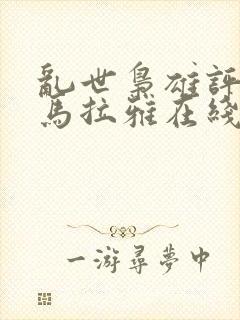 亂世梟雄評
馬拉雅在綫
一游尋夢中